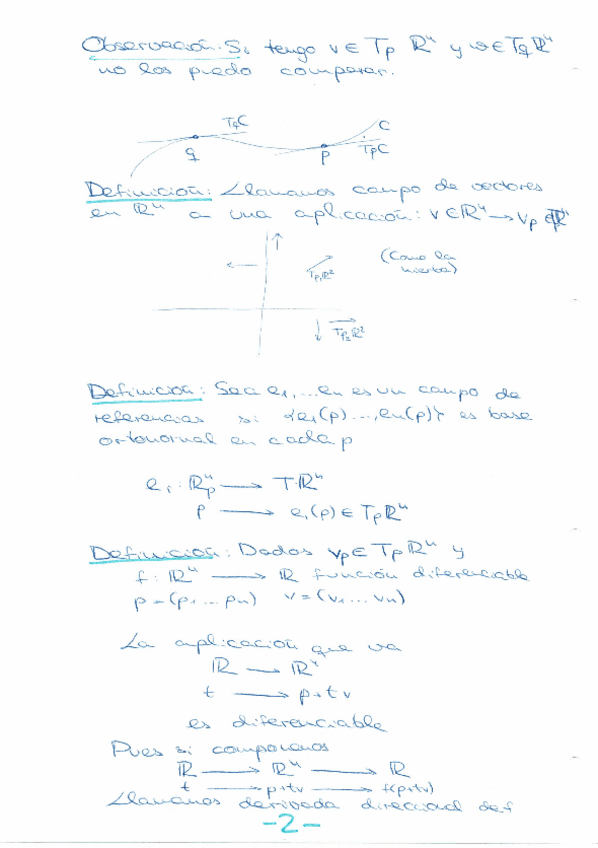 Observación. Si tengo v ∈ Tp ℝⁿ y w ∈ Tqℝⁿ
no los puedo comparar.
TqC
C
q
p
TpC
Definición: Llamamos campo de vectores
en ℝⁿ a una aplicación: v ∈ ℝⁿ → Vp ∈ ℝⁿ
(Como la
Tp₁ℝ²
Tp₂ℝ²
Definición: Sea e₁,...en es un campo de
referencias si {e₁(p)...,en(p)} es base
ortonormal en cada p
e₁: ℝⁿp → Tℝⁿ
p → e₁(p) ∈ Tpℝⁿ
Definición: Dados vp ∈ Tpℝⁿ y
f: ℝⁿ → ℝ función diferenciable
p=(p₁...pn) v=(v₁...vn)
La aplicación que va
ℝ → ℝⁿ
t → p+tv
es diferenciable
Pues si componemos
ℝ → ℝⁿ → ℝ
t → p+tv → f(p+tv)
Llamamos derivada direccional de f
-2-